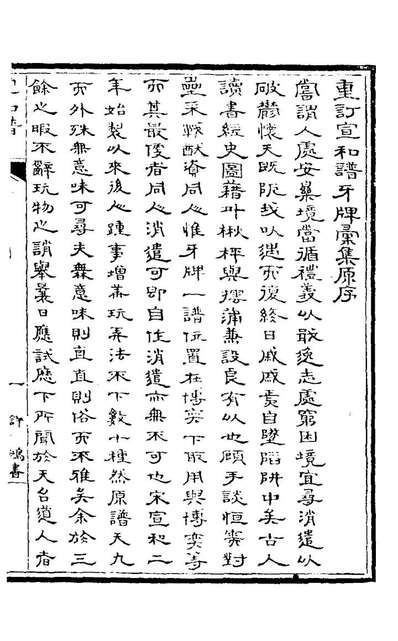 重訂宣和譜牙牌彙集原序
嘗謂人處安樂境當循禮義以啟遠志處窮困境宜尋消遣以
破鬱懷天既阨我以遇而復終日戚戚處自墜陷阱中矣古人
讀書經史圖籍外楸枰與摴蒲兼設良有以也顧手談恒需對
壘采戲猷資同人惟牙牌一譜位置在博奕下取用與博奕等
而其最俊者同人消遣可即自住消遣亦無不可也宋宣和二
年始製以來後人踵事增華玩弄法不下數十種然原譜天九
而外殊無意味可尋夫無意味則直直則俗而不雅矣余於三
餘之暇不辭玩物之誚舉曩日應試應下所聞於天台道人者